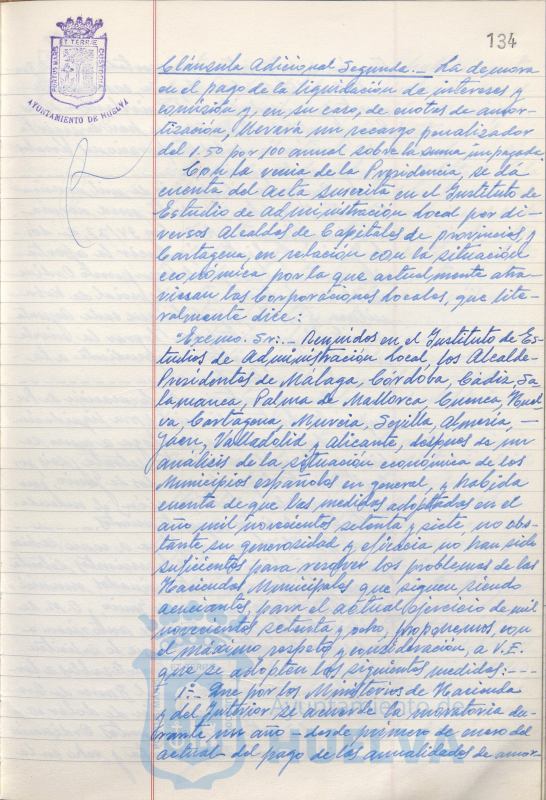 134
PORTUS MARIS
ET TERRAE
CUSTODIA
AYUNTAMIENTO DE HUELVA
Cláusula Adicional Segunda.- La demora
en el pago de la liquidación de intereses y
comisión y, en su caso, de cuotas de amor-
tización, llevará un recargo penalizador
del 1.50 por 100 anual sobre la suma impagada.
Con la venia de la Presidencia, se dá
cuenta del acta suscrita en el Instituto de
Estudio de Administración Local por di-
versos Alcaldes de Capitales de provincias y
Cartagena, en relación con la situación
económica por la que actualmente atra-
viesan las Corporaciones Locales, que lite-
ralmente dice:
"Excmo. Sr:.- Reunidos en el Instituto de Es-
tudios de Administración Local, los Alcaldes-
Presidentes de Málaga, Córdoba, Cádiz, Sa-
lamanca, Palma de Mallorca, Cuenca, Huel-
va, Cartagena, Murcia, Sevilla, Almería, -
Jaén, Valladolid y Alicante, después de un
análisis de la situación económica de los
Municipios españoles en general, y habida
cuenta de que las medidas adoptadas en el
año mil novecientos setenta y siete, no obs-
tante su generosidad y eficacia no han sido
suficientes para resolver los problemas de las
Haciendas Municipales que siguen siendo
acuciantes, para el actual Ejercicio de mil
novecientos setenta y ocho, proponemos, con
el máximo respeto y consideración, a V.E.
que se adopten las siguientes medidas: - - -
1ª.- Que por los Ministerios de Hacienda
y del Interior se acuerde la moratoria du-
rante un año - desde primero de enero del
actual - del pago de las anualidades de amor-
Ayuntamiento de
Huelva